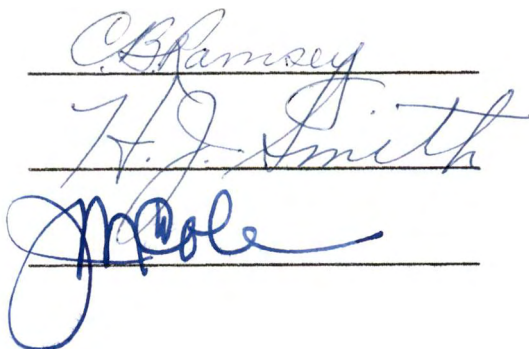 C.B.Ramsey
H. J. Smith
JMCole